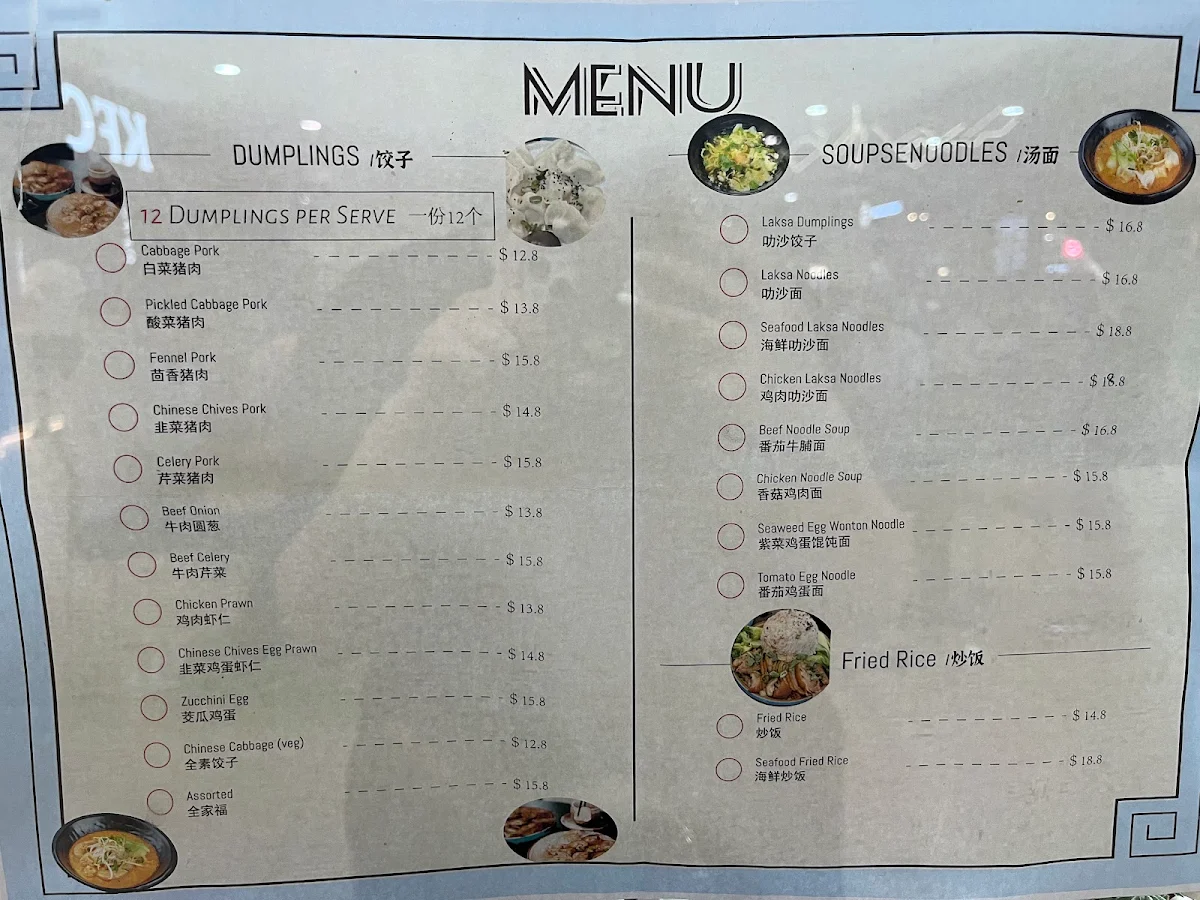 MENU
KFC
DUMPLINGS /饺子
12 DUMPLINGS PER SERVE 一份12个
Cabbage Pork $ 12.8
白菜猪肉
Pickled Cabbage Pork $ 13.8
酸菜猪肉
Fennel Pork $ 15.8
茴香猪肉
Chinese Chives Pork $ 14.8
韭菜猪肉
Celery Pork $ 15.8
芹菜猪肉
Beef Onion $ 13.8
牛肉圆葱
Beef Celery $ 15.8
牛肉芹菜
Chicken Prawn $ 13.8
鸡肉虾仁
Chinese Chives Egg Prawn $ 14.8
韭菜鸡蛋虾仁
Zucchini Egg $ 15.8
茭瓜鸡蛋
Chinese Cabbage (veg) $ 12.8
全素饺子
Assorted $ 15.8
全家福
SOUPSENOODLES /汤面
Laksa Dumplings $ 16.8
叻沙饺子
Laksa Noodles $ 16.8
叻沙面
Seafood Laksa Noodles $ 18.8
海鲜叻沙面
Chicken Laksa Noodles $ 18.8
鸡肉叻沙面
Beef Noodle Soup $ 16.8
番茄牛腩面
Chicken Noodle Soup $ 15.8
香菇鸡肉面
Seaweed Egg Wonton Noodle $ 15.8
紫菜鸡蛋馄饨面
Tomato Egg Noodle $ 15.8
番茄鸡蛋面
Fried Rice /炒饭
Fried Rice $ 14.8
炒饭
Seafood Fried Rice $ 18.8
海鲜炒饭